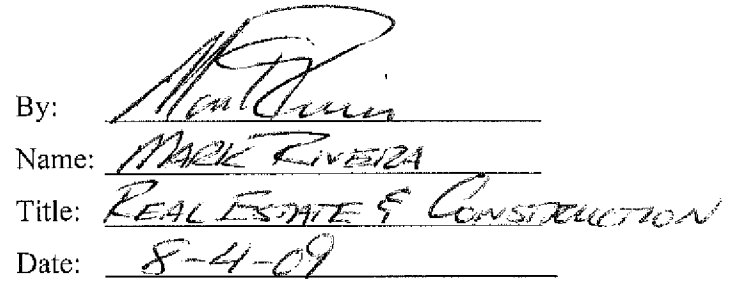 By: Mark Rivera
Name: MARK RIVERA
Title: REAL ESTATE & CONSTRUCTION
Date: 8-4-09